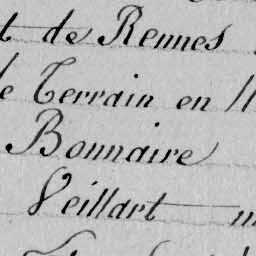 t de Rennes
de Terrain en
Bonnaire
Veillart